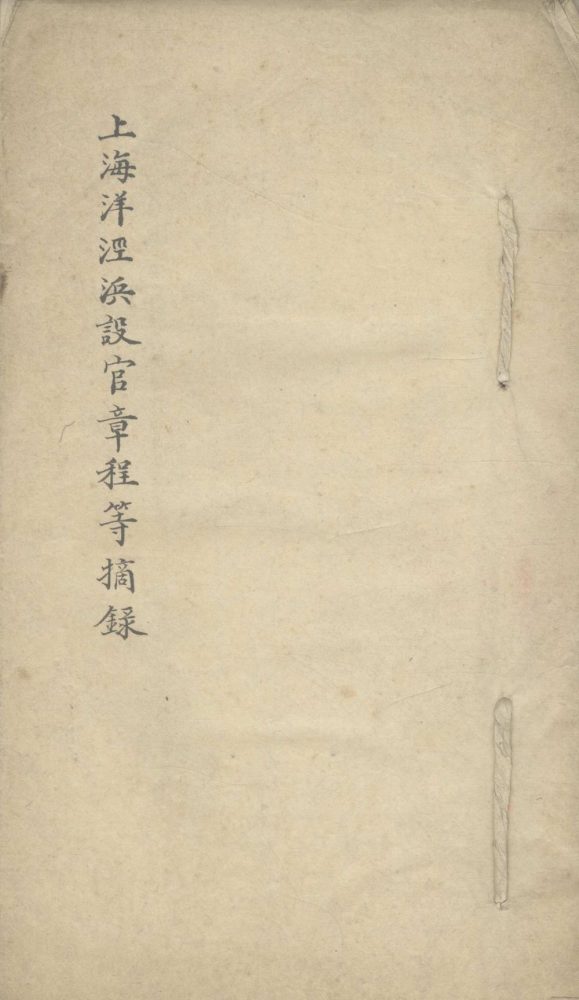 上海洋涇浜設官章程等摘録